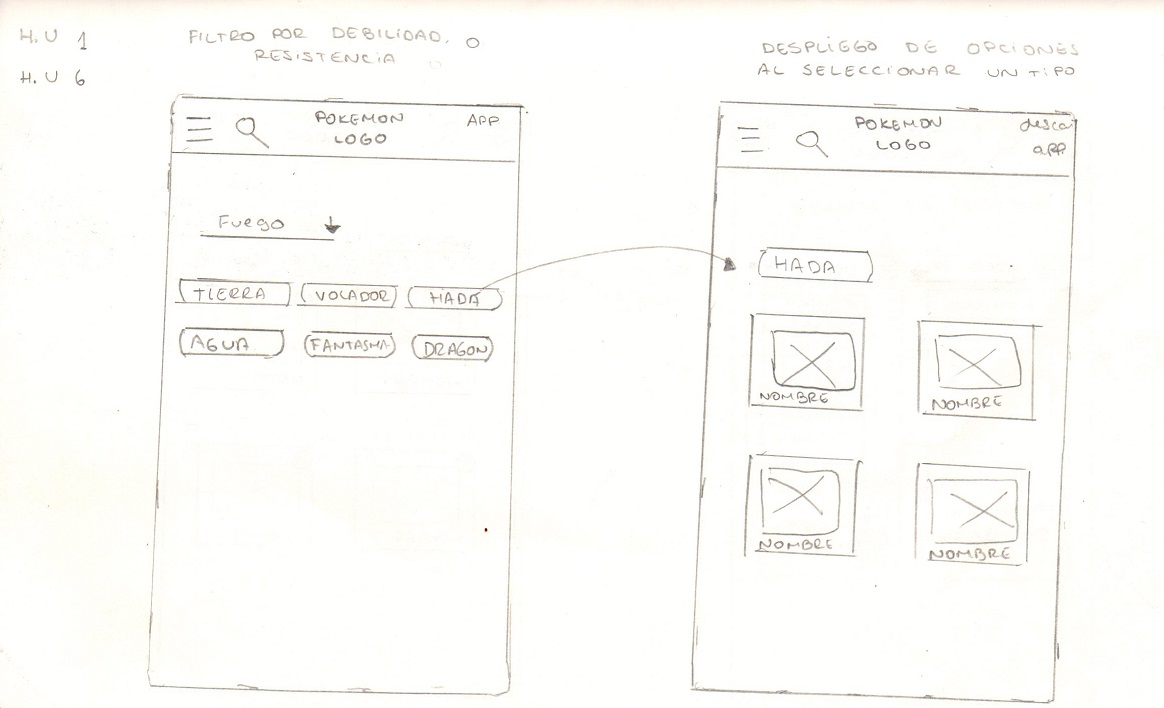 H.U 1
H.U 6
FILTRO POR DEBILIDAD. O
RESISTENCIA
POKEMON
LOGO
APP
Fuego
TIERRA VOLADOR HADA
AGUA FANTASMA DRAGON
DESPLIEGO DE OPCIONES
AL SELECCIONAR UN TIPO
POKEMON
LOGO
descar
app
HADA
NOMBRE NOMBRE
NOMBRE NOMBRE